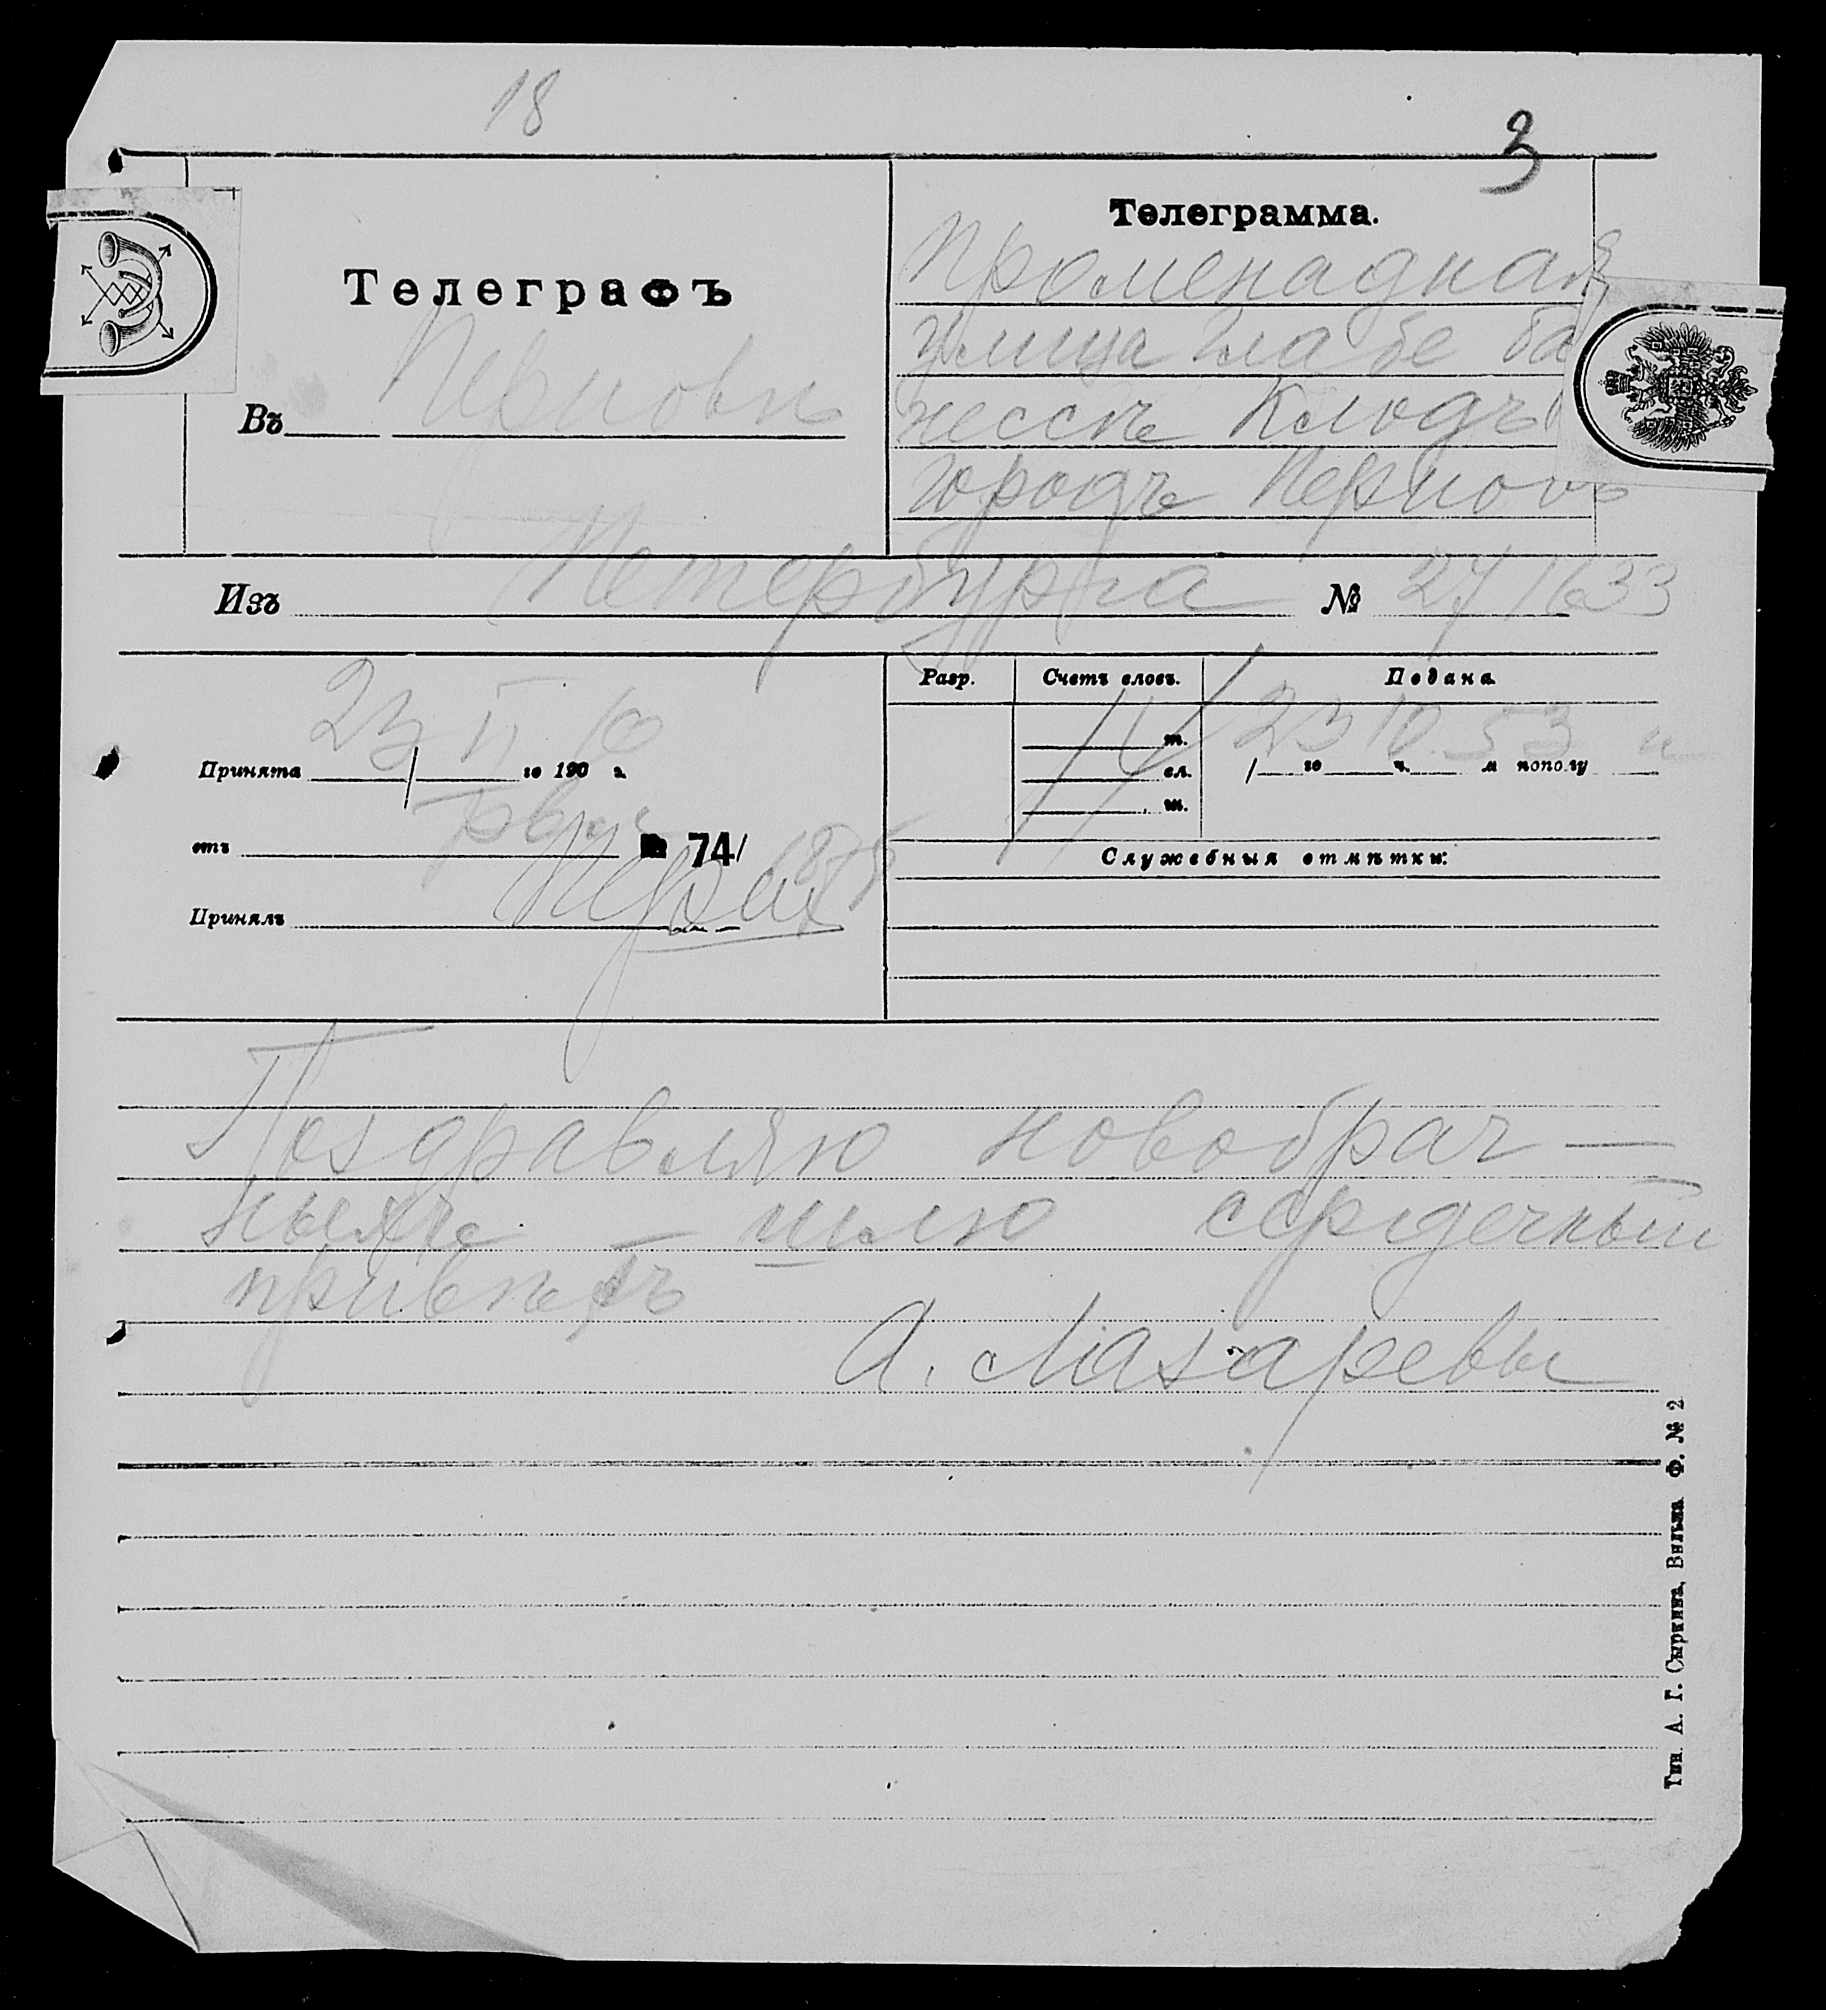 18
3
Телеграфъ
Въ Перновъ
Телеграмма.
Променадная
улица
нессѣ Клодтъ
городъ Перновъ
Изъ Петербурга № 27 1633
Принята 23/II 10 го 190 г.
отъ № 74/
Принялъ
Разр.
Счетъ словъ.
Подана
14
т.
сл.
ш.
23 го 10 ч. 53 м пополу н
Служебныя отмѣтки:
Поздравляю новобрач—
ныхъ – шлю сердечный
привѣтъ
А. Лазаревы
Тип. А. Г. Сыркина, Вильна Ф. № 2